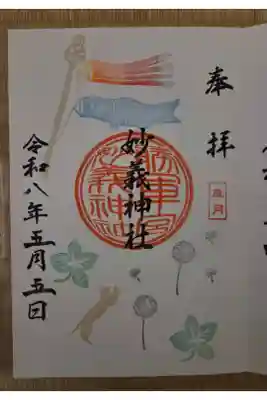 奉拝
皐月
妙義神社
令和八年五月五日